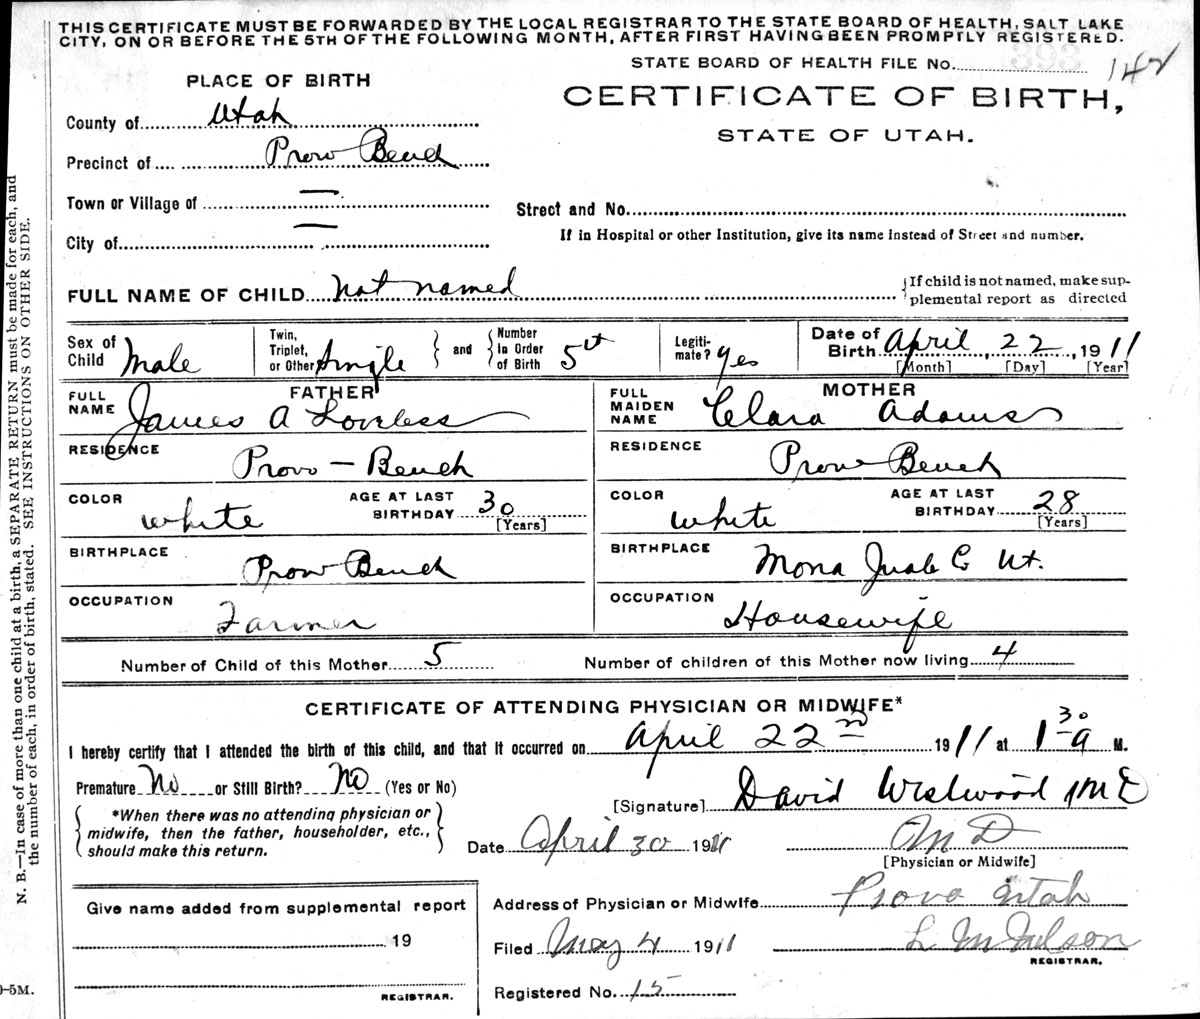 THIS CERTIFICATE MUST BE FORWARDED BY THE LOCAL REGISTRAR TO THE STATE BOARD OF HEALTH, SALT LAKE
CITY, ON OR BEFORE THE 5TH OF THE FOLLOWING MONTH, AFTER FIRST HAVING BEEN PROMPTLY REGISTERED.
STATE BOARD OF HEALTH FILE No. 393 142
PLACE OF BIRTH
CERTIFICATE OF BIRTH,
STATE OF UTAH.
County of Utah
Precinct of Provo Bench
Town or Village of —
City of —
Street and No.
If in Hospital or other Institution, give its name instead of Street and number.
FULL NAME OF CHILD Not named
If child is not named, make sup-
plemental report as directed
Sex of Child Male
Twin, Triplet, or Other Single and Number in Order of Birth 5th
Legiti-mate? Yes
Date of Birth April, 22, 1911
[Month] [Day] [Year]
FATHER
FULL NAME James A Loveless
RESIDENCE Provo - Bench
COLOR White AGE AT LAST BIRTHDAY 30 [Years]
BIRTHPLACE Provo Bench
OCCUPATION Farmer
MOTHER
FULL MAIDEN NAME Clara Adams
RESIDENCE Provo Bench
COLOR White AGE AT LAST BIRTHDAY 28 [Years]
BIRTHPLACE Mona Juab Co Ut.
OCCUPATION Housewife
Number of Child of this Mother 5 Number of children of this Mother now living 4
CERTIFICATE OF ATTENDING PHYSICIAN OR MIDWIFE*
I hereby certify that I attended the birth of this child, and that it occurred on April 22nd 1911 at 1 30 a M.
Premature No or Still Birth? No (Yes or No)
*When there was no attending physician or
midwife, then the father, householder, etc.,
should make this return.
[Signature] David Westwood M D
Date April 30 1911 M D
[Physician or Midwife]
Give name added from supplemental report
19
REGISTRAR.
Address of Physician or Midwife Provo Utah
Filed May 4 1911 L M Nelson
REGISTRAR.
Registered No. 15
N. B.—In case of more than one child at a birth, a SEPARATE RETURN must be made for each, and
the number of each, in order of birth, stated. SEE INSTRUCTIONS ON OTHER SIDE.
0-5M.